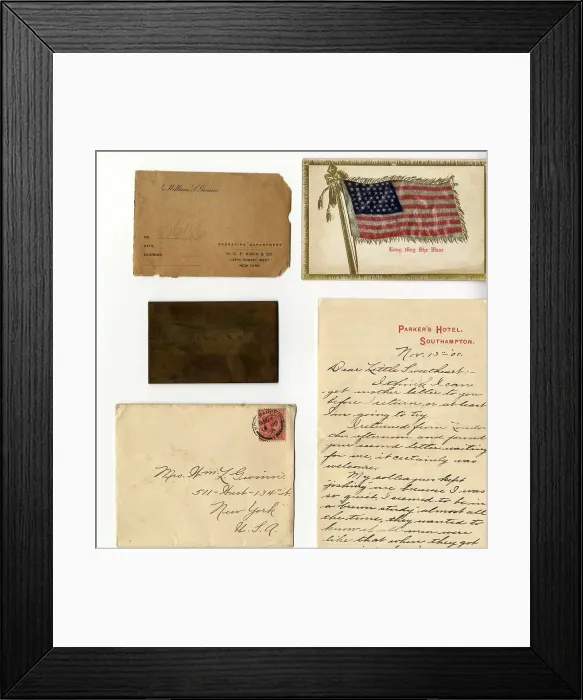 William L. Gwinn
No.
DATE,
ENGRAVING DEPARTMENT
H. C. F. KOCH & CO.
125TH STREET, WEST
NEW YORK
Long May She Wave
Mrs. Wm L Gwinn
511-West-134th St
New York
U.S.A.
PARKER'S HOTEL.
SOUTHAMPTON.
Nov. 13th '05.
Dear Little Sweetheart:-
I think I can
get another letter to you
before I return, or at least
I'm going to try
I returned from London
this afternoon and found
your second letter waiting
for me, it certainly was
welcome.
My colleagues kept
joshing me because I was
so quiet, I seemed to be in
a brown study almost all
the time, they wanted to
know if all men were
like that where they got